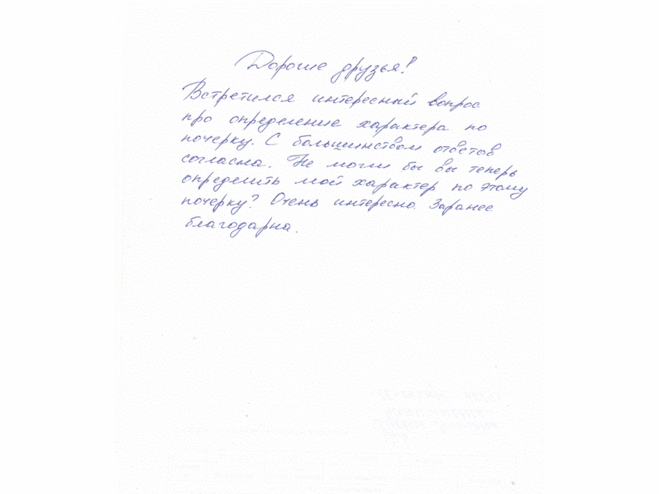 Дорогие друзья!
Встретился интересный вопрос
про определение характера по
почерку. С большинством ответов
согласна. Не могли бы вы теперь
определить мой характер по этому
почерку? Очень интересно. Заранее
благодарна.